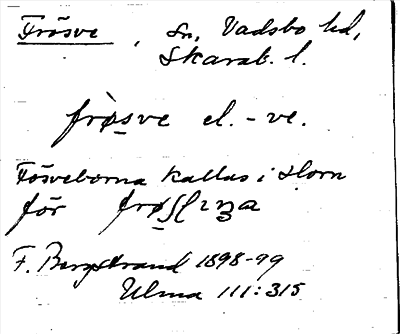 Frösve, Sn, Vadsbo hd,
Skarab. l.
frò̱sve el. -ve.
Fösveborna kallas i Horn
för
F. Bergstrand 1898-99
Ulma 111:315